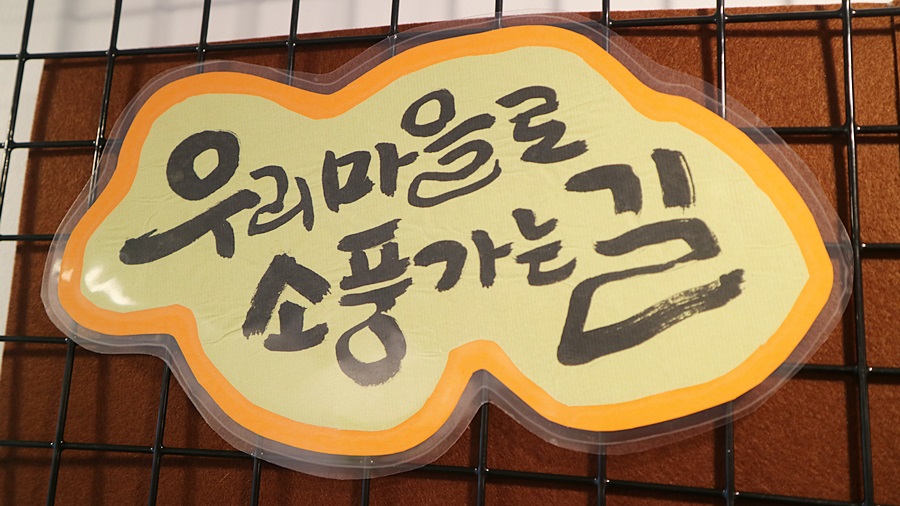 우리마을로
소풍가는길